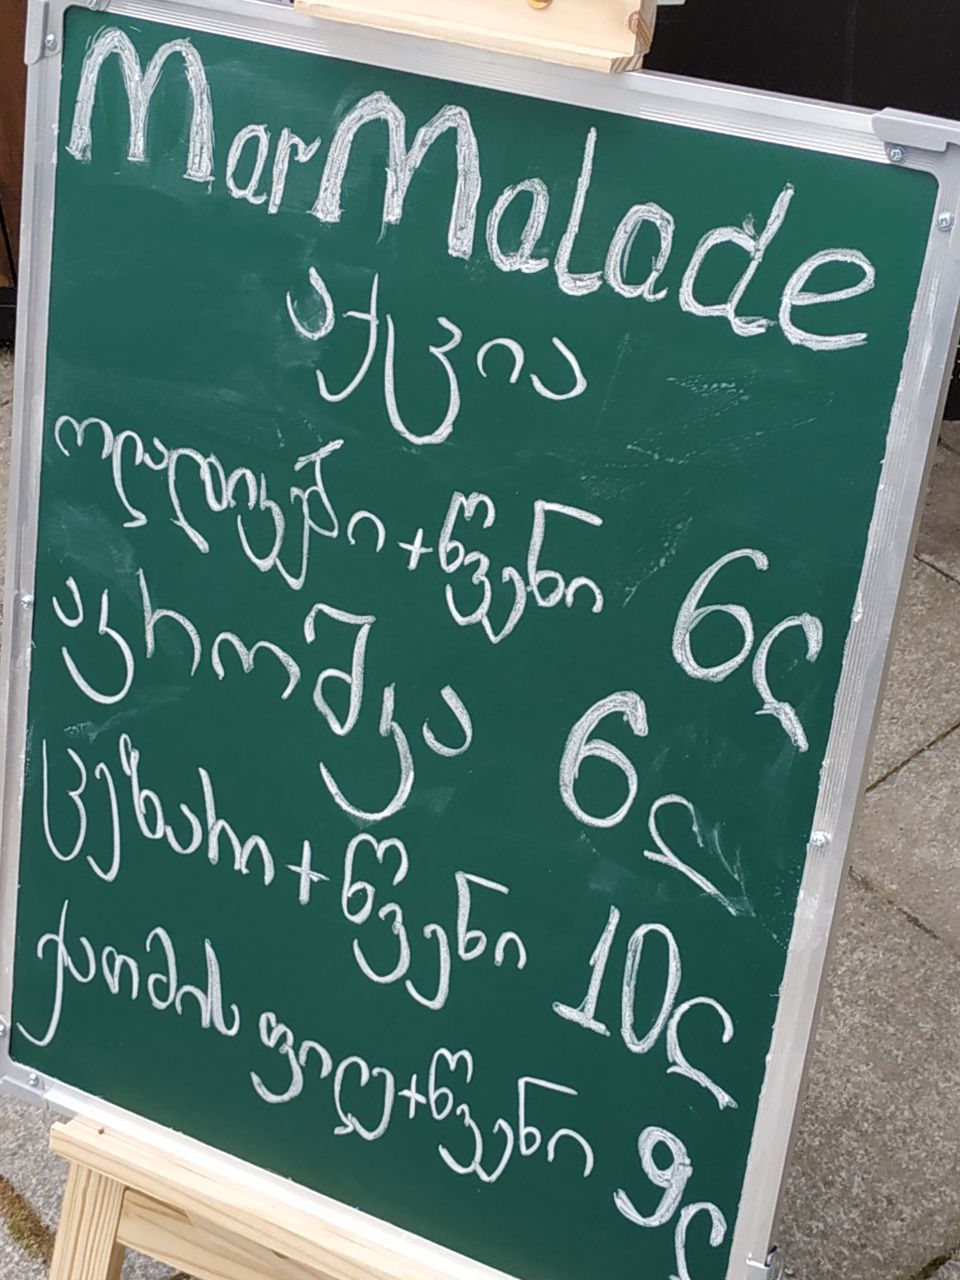 MarMalade
აქცია
ოლადიკები+წვენი 6ლ
აკროშკა 6ლ
ცეზარი+წვენი 10ლ
ქათმის ფილე+წვენი 9ლ